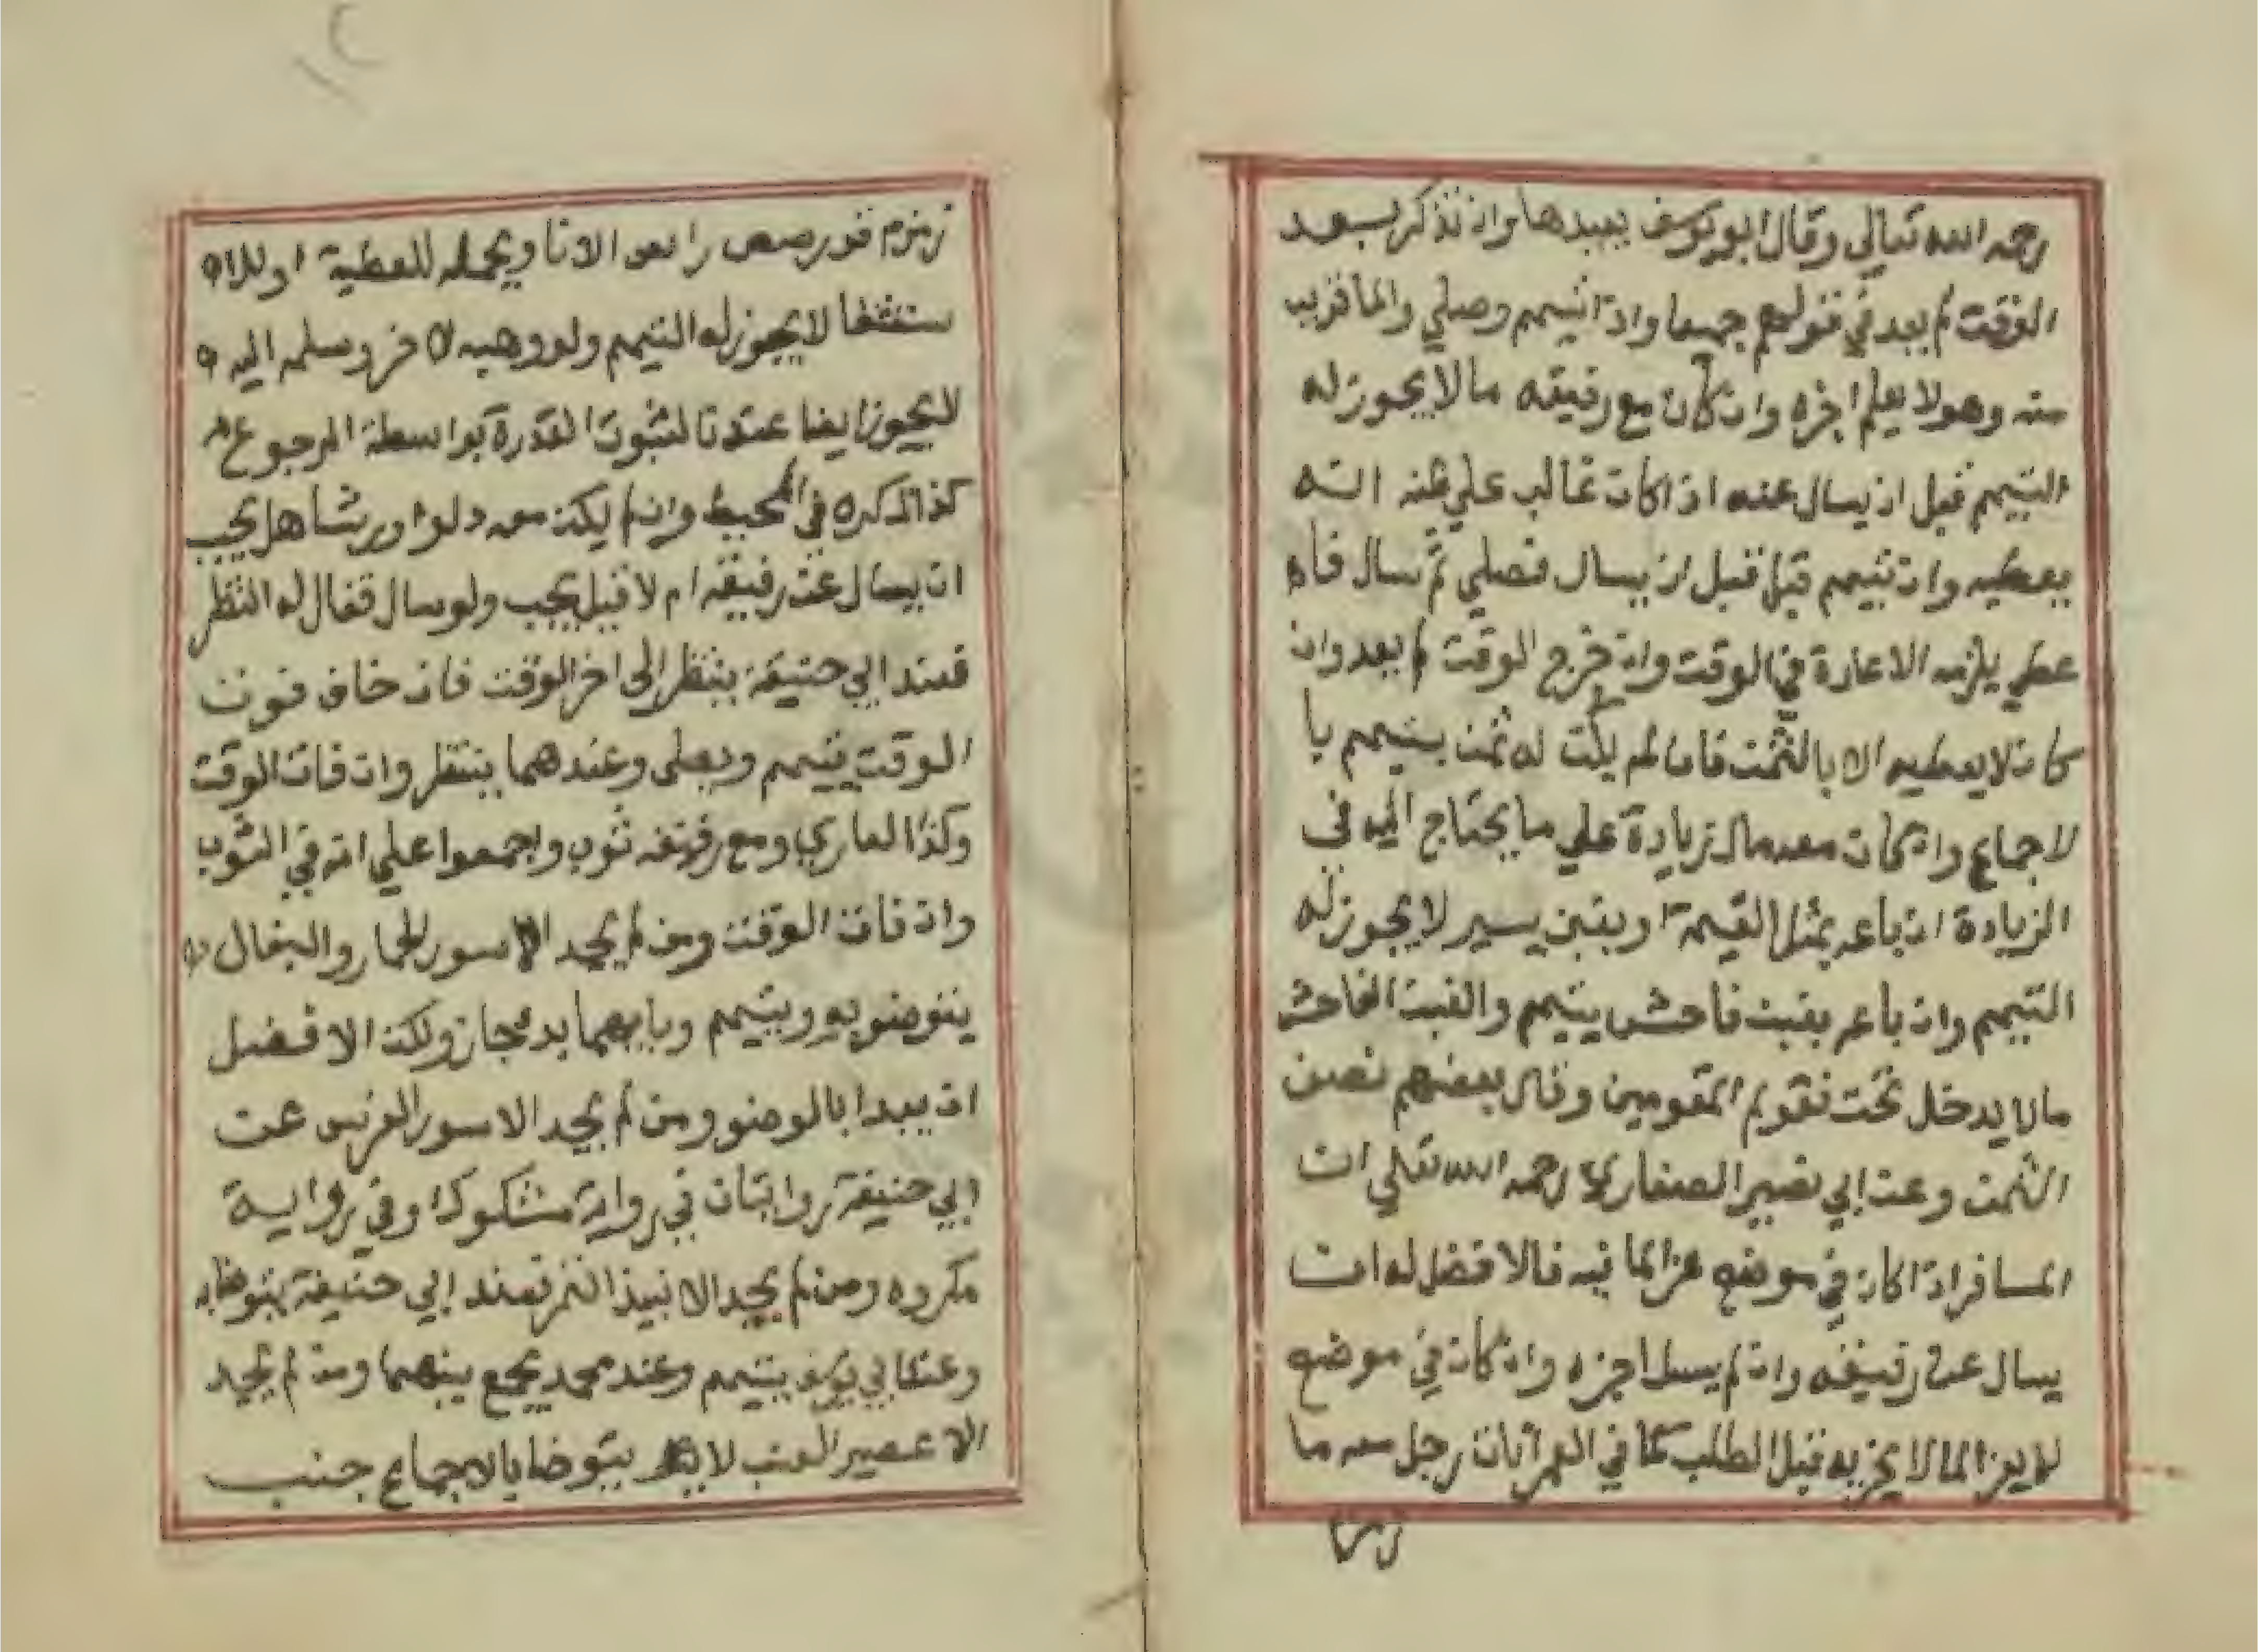 رحمه الله تعالى وقال ابو يوسف يعيدها وان تذكر بعد
الوقت لم يعد في قولهم جميعا واذا تيمم وصلي والما قريب
منه وهو لا يعلم اجزه وان كان مع رفيقه ما لا يجوز له
التيمم قبل ان يسال عنه اذا كان غالب علي ظنه انه
يعطيه وان تيمم قبل ان يسال فصلي ثم سال فاه
عطي يلزمه الاعادة في الوقت وان خرج الوقت لم يعد وان
كان لا يعطيه الا بالثمن فان لم يكن له ثمن يتيمم با
لاجماع وان كان معه مال زيادة علي ما يحتاج اليه في
الزيادة ان باعه بمثل القيمة او بغبن يسير لا يجوز له
التيمم وان باعه بغبن فاحش يتيمم والغبن الفاحش
مالا يدخل تحت تقويم المقومين وقال بعضهم نصف
الثمن وعن ابي نصير الصفاري رحمه الله تعلي ان
المسافر اذا كان في موضع عز الما فيه فالافضل له ان
يسال عن رفيقه وان لم يسل اجزه وان كان في موضع
لا يعز الما لا يجزيه قبل الطلب كما في العمرآنات رجل معه ما
زمزم
زمزم را الانا ويحمله للعطية
لا يجوز له التيمم ولو وهبه لاخر وسلمه اليه
لا يجوز ايضا عندنا لثبوت القدرة بواسطة الرجوع
كذا ذكره في المحيط وان لم يكن معه دلو او رشا هل يجب
ان يسال عن رفيقه ام لا قيل يجب ولو سال فقال له انتظر
فعند ابي حنيفة ينتظر الى اخر الوقت فان خاف فوت
الوقت يتيمم ويصلى وعندهما ينتظر وان فات الوقت
وكذا العاري ومع رفيقه ثوب واجمعوا علي انه في الثوب
وان فات الوقت ومن لم يجد الا سور الحمار والبغال
يتوضو به ويتيمم وبايهما بدء جاز ولكن الافضل
ان يبدا بالوضو ومن لم يجد الا سور الفرس عن
ابي حنيفة روايتان في رواية مشكوك وفي رواية
مكروه ومن لم يجد الا نبيذ التمر فعند ابي حنيفة يتوضا به
وعند ابي يوسف يتيمم وعند محمد يجمع بينهما ومن لم يجد
الا عصير العنب لا يتوضا بالاجماع جنب